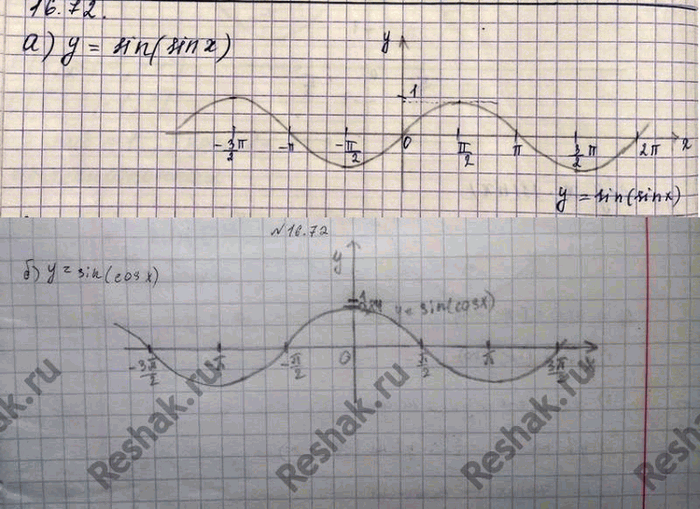 16.72.
а) y = sin(sinx)
y
1
-3/2 π -π -π/2 0 π/2 π 3/2 π 2π x
y = sin(sinx)
№16.72
б) y = sin(cosx)
y
1
y = sin(cosx)
-3π/2 -π -π/2 0 π/2 π 3π/2 x
Reshak.ru Reshak.ru Reshak.ru Reshak.ru